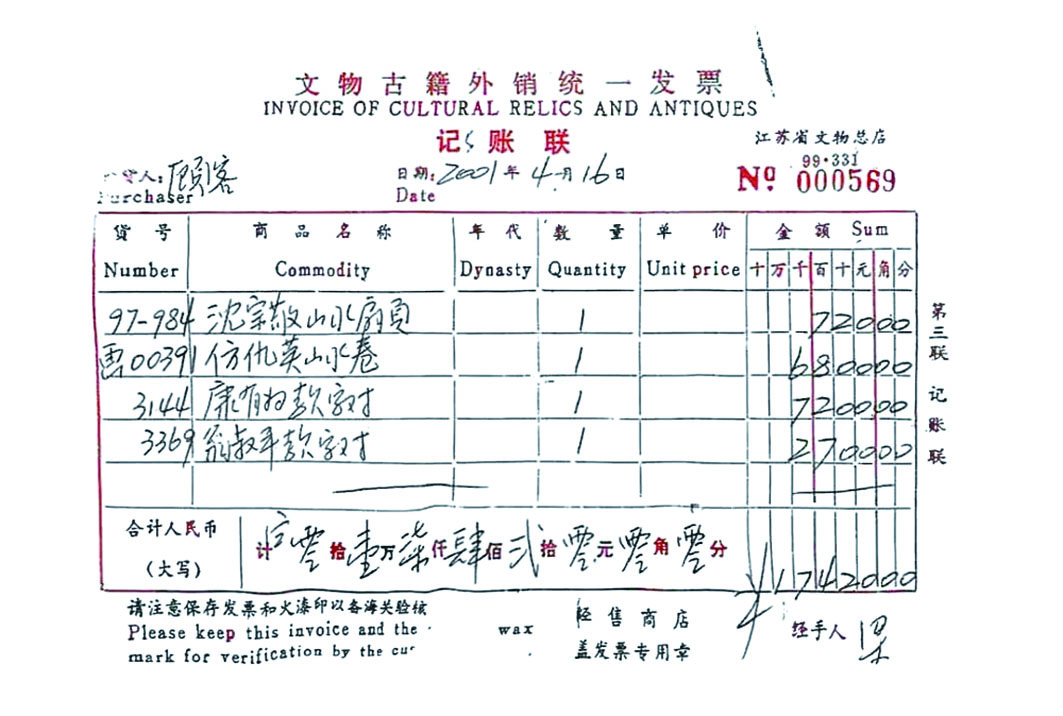 文物古籍外销统一发票
INVOICE OF CULTURAL RELICS AND ANTIQUES
记账联
江苏省文物总店
99·331
人:顾客
Purchaser
日期:2001年4月16日
Date
Nº 000569
货号 商品名称 年代 数量 单价 金额 Sum
Number Commodity Dynasty Quantity Unit price 十万千百十元角分
97-984 沈宗敬山水扇页 1 72000
00391 仿仇英山水卷 1 680000
3144 康有为款字对 1 720000
3369 翁叔平款字对 1 270000
合计人民币
(大写)
计 零拾壹万柒仟肆佰贰拾零元零角零分
¥1742000
第三联 记账联
请注意保存发票和火漆印以备海关验核
Please keep this invoice and the wax
mark for verification by the cu
经售商店
盖发票专用章
经手人 梁